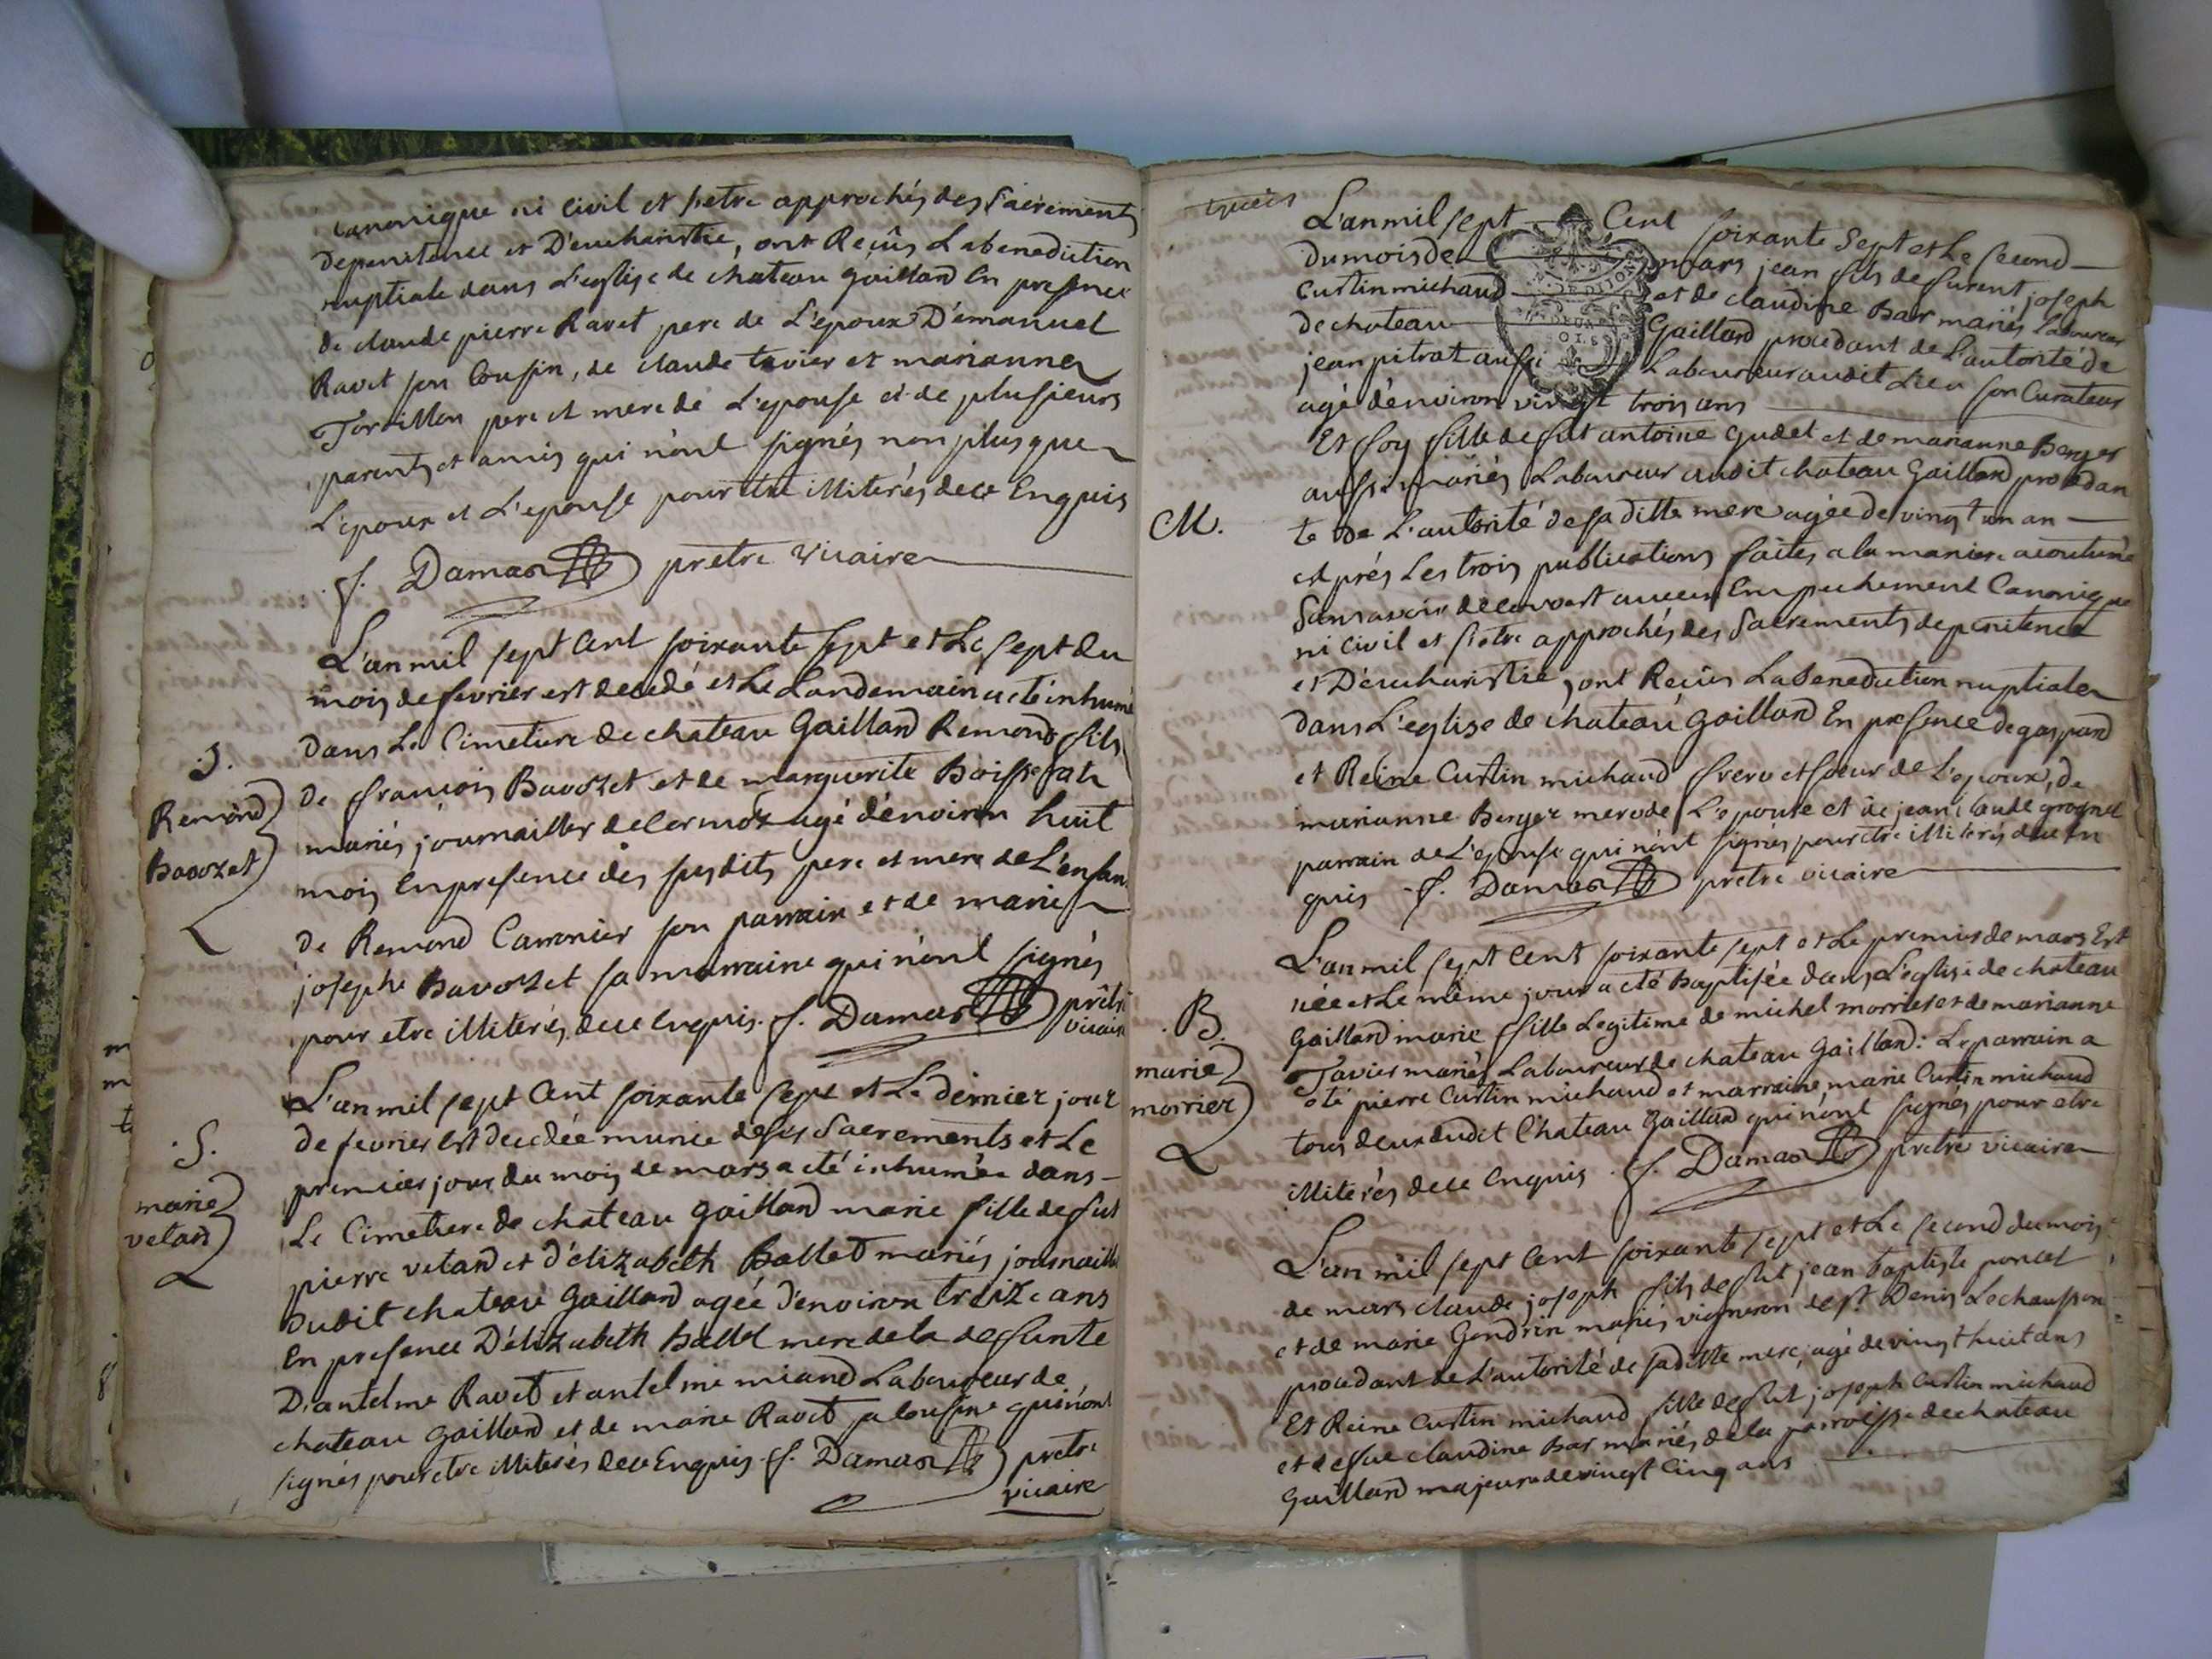 canonique ni civil et s'etre approchés des Sacrements
de penitence et D'eucharistie, ont Reçûs La benediction
nuptiale dans L'eglise de chateau gaillard En presence
de claude pierre Ravet pere de L'epoux D'emanuel
Ravet son Cousin, de claude tavier et marianne
Torillon pere et mere de L'epouse et de plusieurs
parents et amis qui n'ont signés non plus que
L'epoux et L'epouse pour etre illiterés de ce Enquis
f. Damas prêtre vicaire
L'an mil sept Cent soixante sept et Le sept du
mois de fevrier est decedé et Le Landemain a eté inhumé
dans Le Cimetiere de chateau Gaillard Remond fils
de françois Bavozet et de marguerite Boisserat
mariés journailler de Cormoz agé d'environ huit
mois En presence des susdits pere et mere de L'enfan
de Remond Carronier son parrain et de marie
josephe Bavozet sa marraine qui n'ont signés
pour etre illiterés de ce enquis. f. Damas prêtre
vicaire
.S.
Remond
Bavozet
L'an mil sept Cent soixante sept et Le dernier jour
de fevrier Est decedée munie de ses Sacrements et Le
premier jour du mois de mars a eté inhumée dans
Le Cimetiere de chateau gaillard marie fille de fut
pierre vetard et d'élizabeth Ballet mariés journaill
dudit chateau Gaillard agée d'environ treize ans
En presence D'élizabeth Ballet mere de la defunte
D'antelme Ravet et antelme miand Laboureur de
chateau gaillard et de marie Ravet sa Cousine qui n'ont
signés pour etre illiterés de ce Enquis. f. Damas pretre
vicaire
.S.
marie
vetard
L'an mil sept Cent soixante Sept et Le second
du mois de mars jean fils de furent joseph
Curtin michaud et de claudine Bar mariés Laboureur
de chateau Gaillard procedant de L'autorité de
jean pitrat aussi Laboureur audit Lieu son Curateur
agé d'environ vingt trois ans
Et foy fille de fut antoine gudet et de marianne Berger
aussi mariés Laboureur audit chateau Gaillard procedan
te de L'autorité de sa ditte mere agée de vingt un an
et prés Les trois publications faites a la maniere acoutumé
Sans avoir decouvert aucun Empechement Canonique
ni civil et s'etre approchés des Sacrements de penitence
et D'eucharistie, ont Reçûs La benediction nuptiale
dans L'eglise de chateau gaillard En presence de gaspard
et Reine Curtin michaud frere et soeur de L'epoux, de
marianne Berger mere de L'epouse et de jean claude grognet
parrain de L'epouse qui n'ont signés pour etre illiterés de ce En
quis f. Damas prêtre vicaire
M.
L'an mil sept Cent soixante sept et Le premier de mars Est
née et Le même jour a eté Baptisée dans L'eglise de chateau
Gaillard marie fille Legitime de michel morrier et de marianne
Tavier mariés Laboureur de chateau gaillard: Le parrain a
eté pierre Curtin michaud et marraine marie Curtin michaud
tous deux dudit Chateau Gaillard qui n'ont signés pour etre
illiterés de ce enquis. f. Damas pretre vicaire
.B.
marie
morrier
L'an mil sept Cent soixante sept et Le second du mois
de mars claude joseph fils de fut jean baptiste poncet
et de marie Gondrin mariés vigneron de st Denis Le chausson
procedant de L'autorité de sa ditte mere, agé de vingt huit ans
Et Reine Curtin michaud fille de fut joseph Curtin michaud
et de fue claudine Bar mariés de la parroisse de chateau
Gaillard majeure de vingt Cinq ans